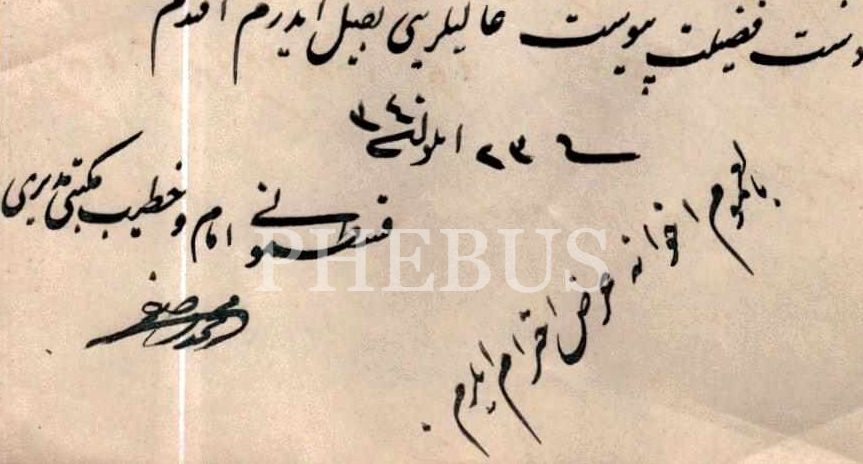 دست فضیلت پیوست عالیلرینی تقبیل ایدرم افندم
فی ٢٣ ایلول سنه ٣٤٠
قسطمونی امام و خطیب مکتبی مدیری
محمد
بالعموم اخوانه عرض احترام ایلرم.
PHEBUS